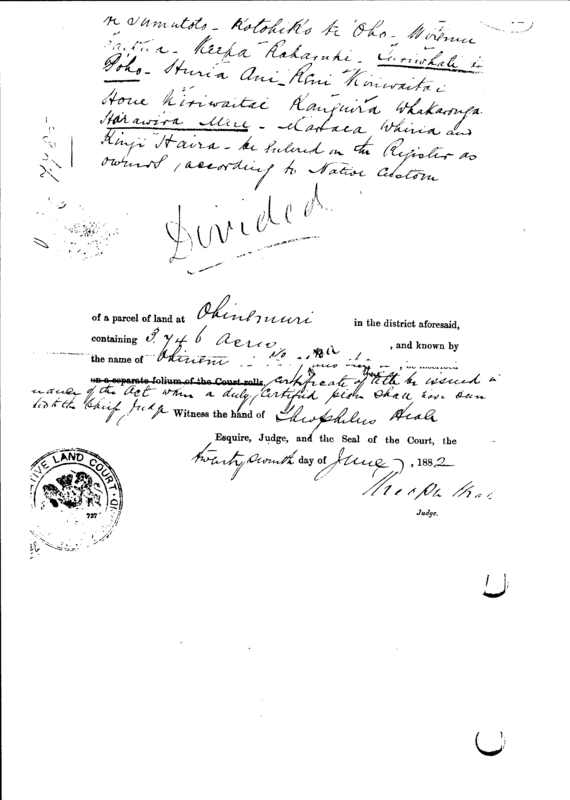 te Tamutoto - Kotohiko te Oho - Wiremu
Paitua - Keepa Raharuhi - Turiwhati te
Poho - Huria Ani - Reni Kiriwaitai
Hone Kiriwaitai Ranguira Whakaronga
Harawira Mere - Manaea Whiria and
Kingi Haira - be entered on the Register as
owners, according to Native Custom
Divided
of a parcel of land at Ohinemuri in the district aforesaid,
containing 3,746 acres , and known by
the name of Ohinem No
on a separate folium of the Court rolls, Certificate of title be issued in
of the Act when a duly certified plan shall
the Chief Judge Witness the hand of Theophilus Heale
Esquire, Judge, and the Seal of the Court, the
twenty seventh day of June, 1882
Theoph Heale
Judge.
NATIVE LAND COURT
727